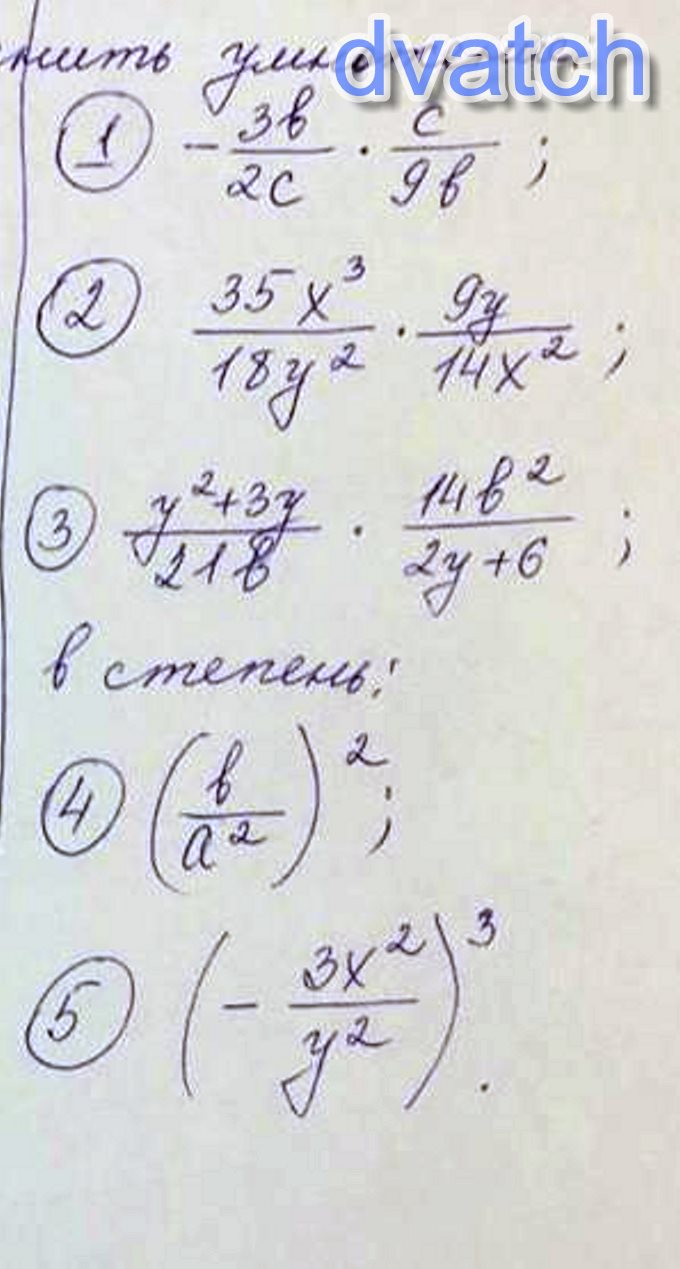 dvatch
① - 3в/2с · с/9в ;
② 35x³/18y² · 9y/14x² ;
③ y²+3y/21в · 14в²/2y+6 ;
в степень:
④ (в/a²)² ;
⑤ (- 3x²/y²)³ .